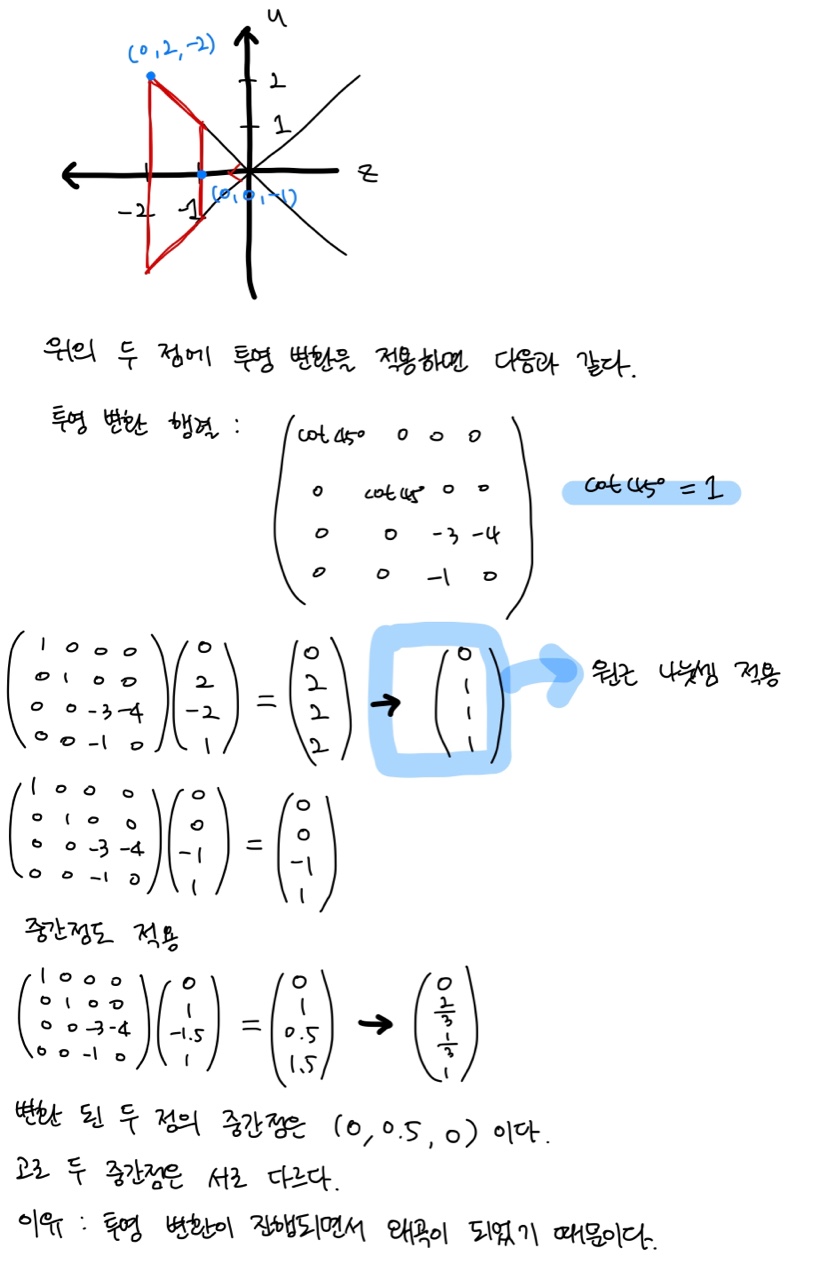 y
(0,2,-2)
2
1
z
(0,0,-1)
-2 -1
위의 두 점에 투영 변환을 적용하면 다음과 같다.
투영 변환 행렬 :
cot45° 0 0 0
0 cot45° 0 0
0 0 -3 -4
0 0 -1 0
cot45° = 1
1 0 0 0   0   0   0
0 1 0 0   2   2   1
0 0 -3 -4   -2 = 2 → 1
0 0 -1 0   1   2   1
원근 나눗셈 적용
1 0 0 0   0   0
0 1 0 0   0   0
0 0 -3 -4   -1 = -1
0 0 -1 0   1   1
중간점도 적용
1 0 0 0   0   0   0
0 1 0 0   1   1   2/3
0 0 -3 -4   -1.5 = 0.5 → 1/3
0 0 -1 0   1   1.5   1
변환 된 두 점의 중간점은 (0, 0.5, 0) 이다.
고로 두 중간점은 서로 다르다.
이유 : 투영 변환이 진행되면서 왜곡이 되었기 때문이다.